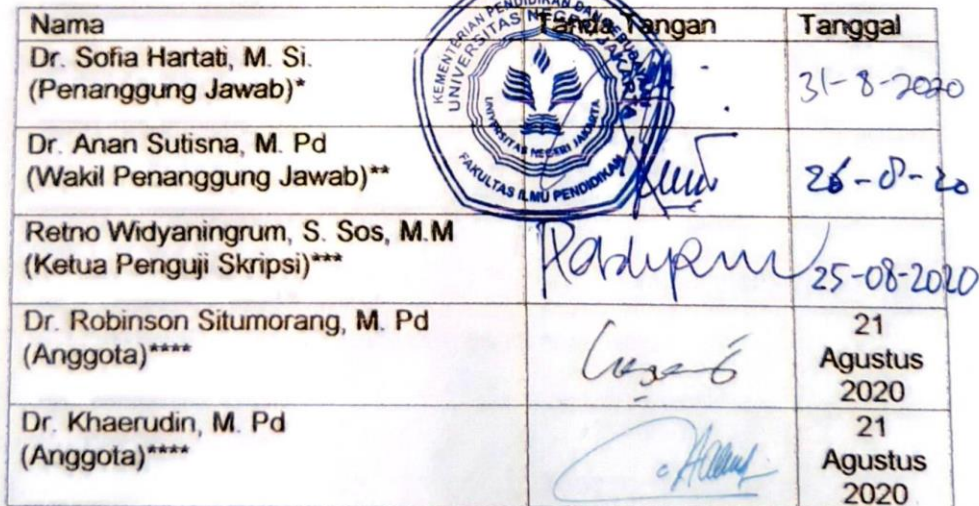 Nama Tanda Tangan Tanggal
Dr. Sofia Hartati, M. Si.
(Penanggung Jawab)*
31-8-2020
Dr. Anan Sutisna, M. Pd
(Wakil Penanggung Jawab)**
26-8-20
Retno Widyaningrum, S. Sos, M.M
(Ketua Penguji Skripsi)***
25-08-2020
Dr. Robinson Situmorang, M. Pd
(Anggota)****
21
Agustus
2020
Dr. Khaerudin, M. Pd
(Anggota)****
21
Agustus
2020
KEMENTERIAN PENDIDIKAN DAN KEBUDAYAAN
UNIVERSITAS NEGERI JAKARTA
UNIVERSITAS NEGERI JAKARTA
FAKULTAS ILMU PENDIDIKAN